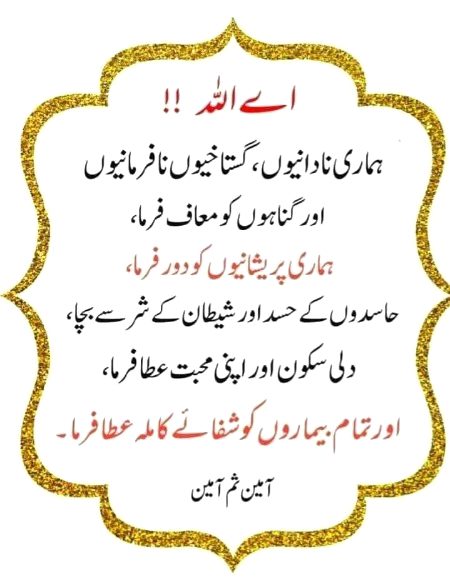 اے اللہ !!
ہماری نادانیوں، گستاخیوں نافرمانیوں
اور گناہوں کو معاف فرما،
ہماری پریشانیوں کو دور فرما،
حاسدوں کے حسد اور شیطان کے شر سے بچا،
دلی سکون اور اپنی محبت عطا فرما،
اور تمام بیماروں کو شفائے کاملہ عطا فرما۔
آمین ثم آمین